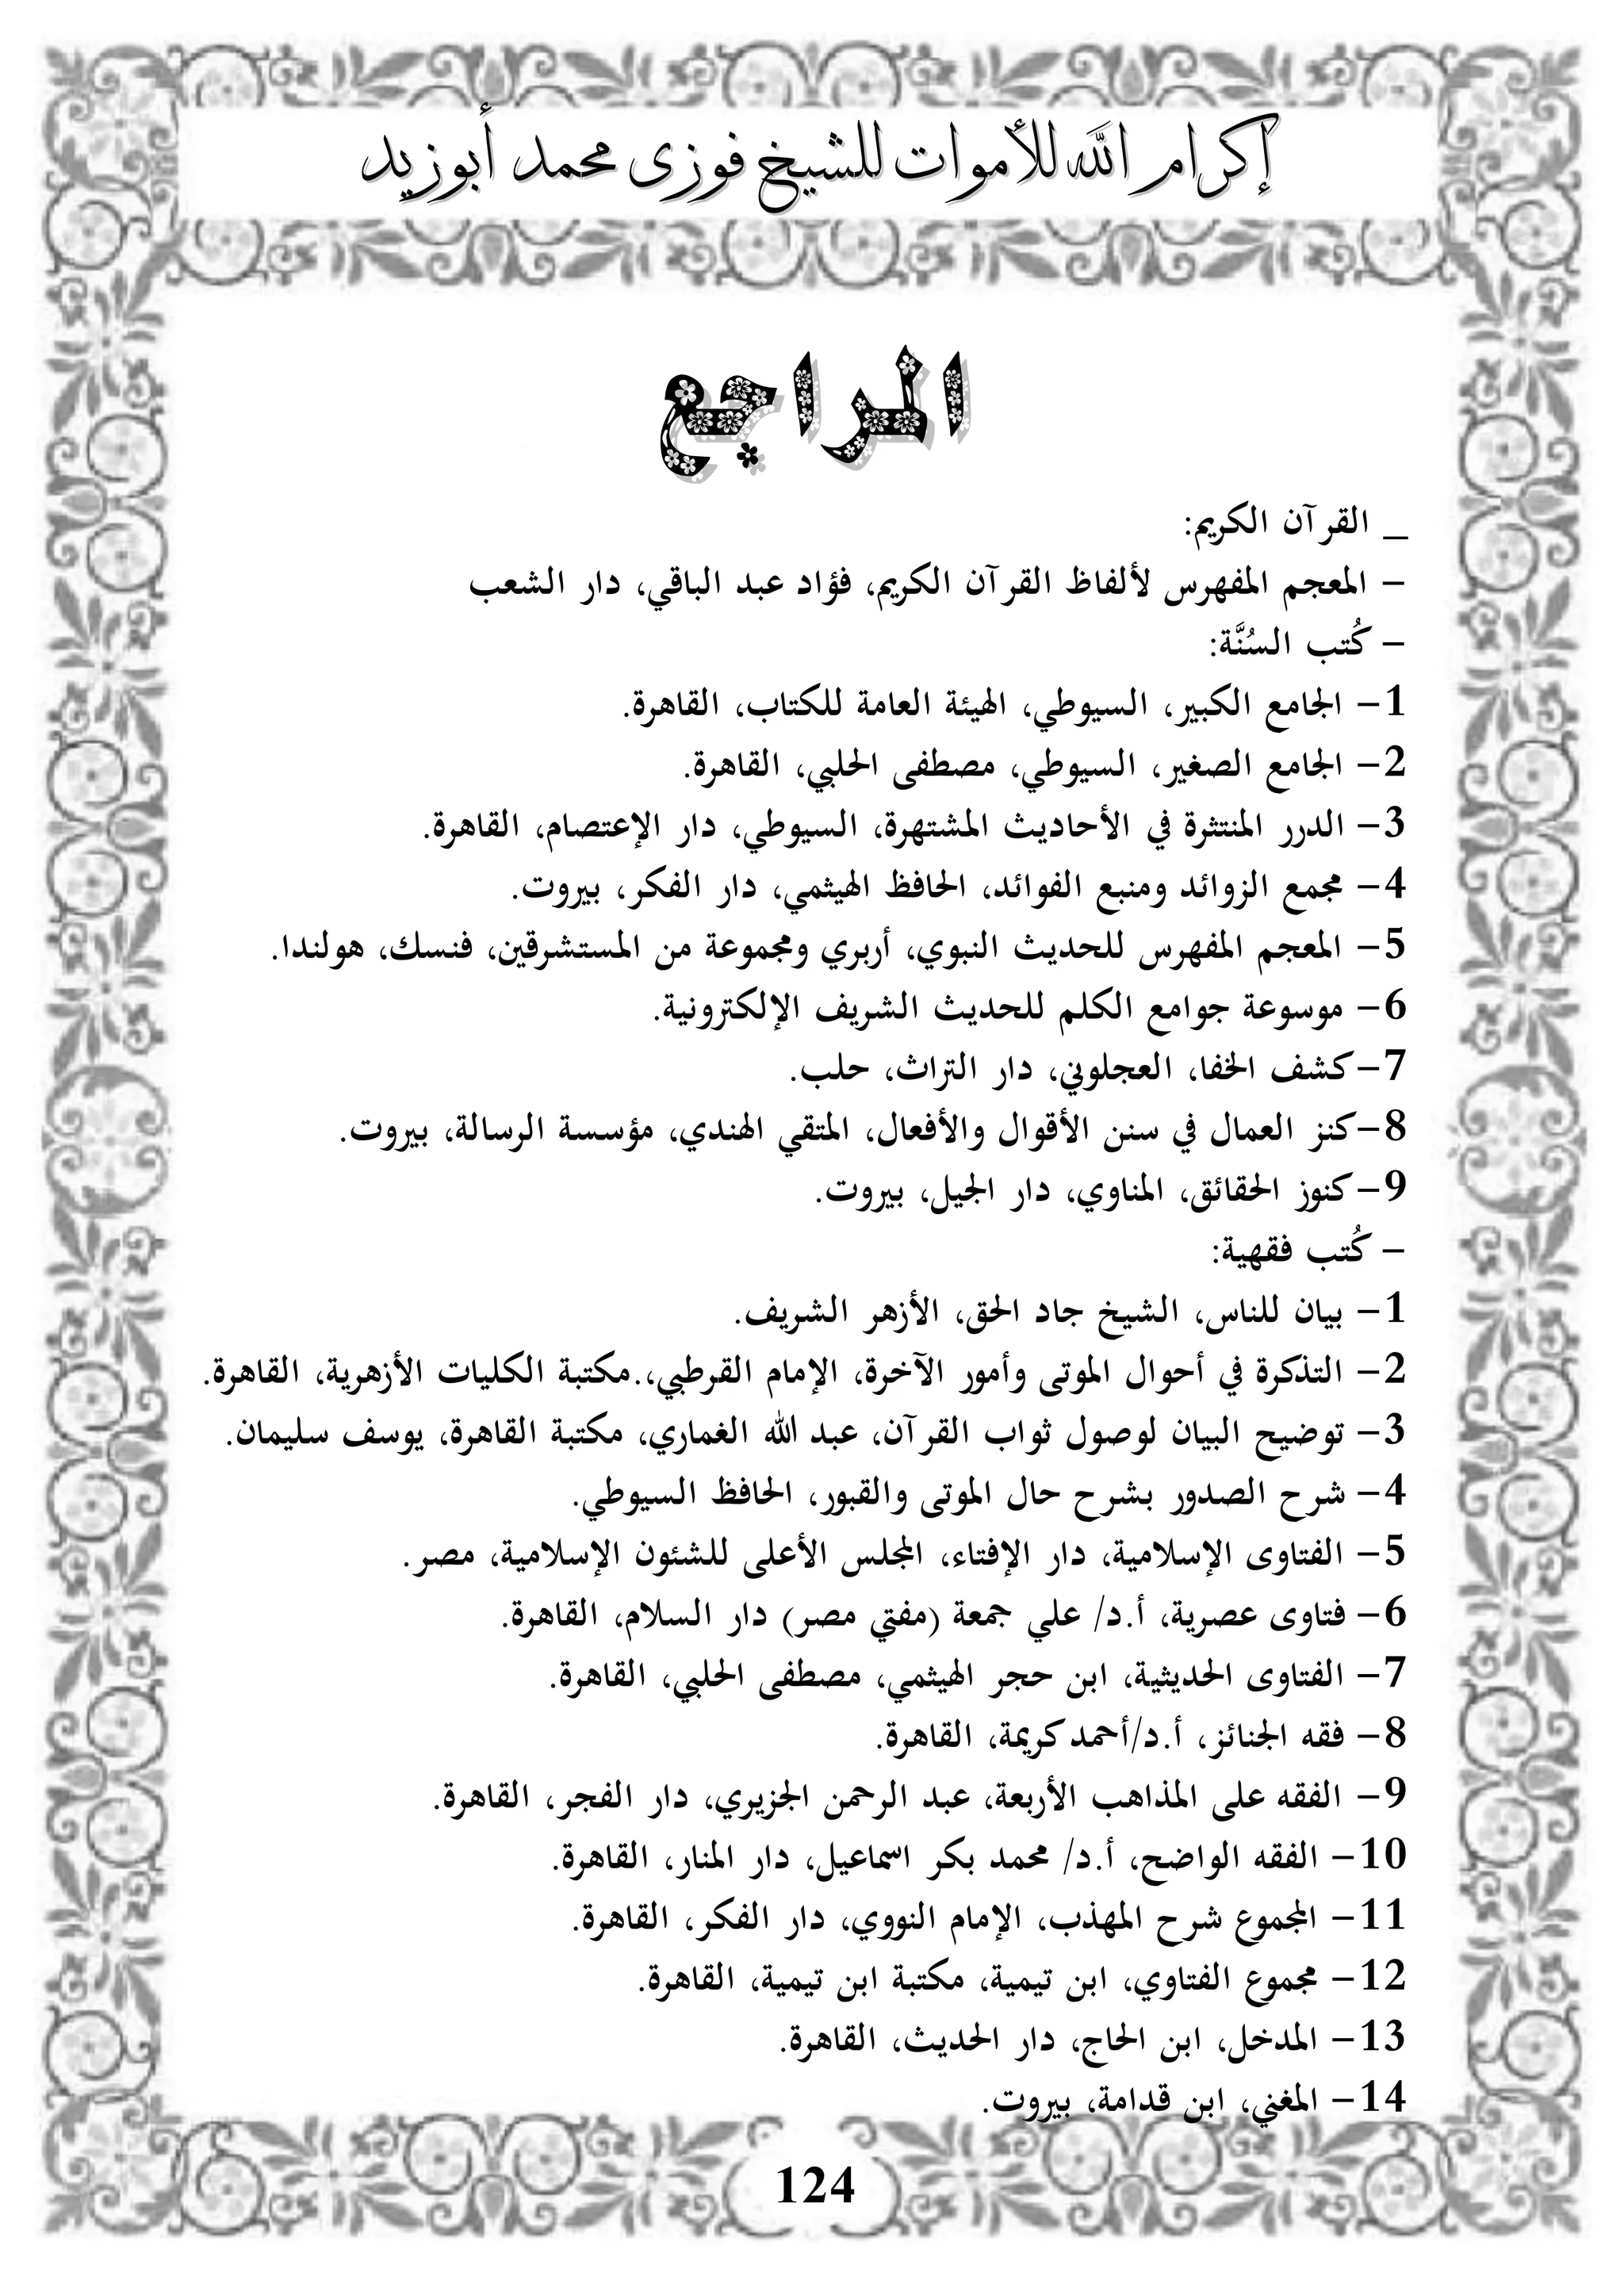 إكرام الله للأموات للشيخ فوزى محمد أبوزيد
المراجع
_ القرآن الكريم:
- المعجم المفهرس لألفاظ القرآن الكريم، فؤاد عبد الباقي، دار الشعب
- كُتب السُنَّة:
1- الجامع الكبير، السيوطي، الهيئة العامة للكتاب، القاهرة.
2- الجامع الصغير، السيوطي، مصطفى الحلبي، القاهرة.
3- الدرر المنتثرة في الأحاديث المشتهرة، السيوطي، دار الإعتصام، القاهرة.
4- مجمع الزوائد ومنبع الفوائد، الحافظ الهيثمي، دار الفكر، بيروت.
5- المعجم المفهرس للحديث النبوي، أربري ومجموعة من المستشرقين، فنسك، هولندا.
6- موسوعة جوامع الكلم للحديث الشريف الإلكترونية.
7- كشف الخفا، العجلوني، دار التراث، حلب.
8- كنز العمال في سنن الأقوال والأفعال، المتقي الهندي، مؤسسة الرسالة، بيروت.
9- كنوز الحقائق، المناوي، دار الجيل، بيروت.
- كُتب فقهية:
1- بيان للناس، الشيخ جاد الحق، الأزهر الشريف.
2- التذكرة في أحوال الموتى وأمور الآخرة، الإمام القرطبي،.مكتبة الكليات الأزهرية، القاهرة.
3- توضيح البيان لوصول ثواب القرآن، عبد الله الغماري، مكتبة القاهرة، يوسف سليمان.
4- شرح الصدور بشرح حال الموتى والقبور، الحافظ السيوطي.
5- الفتاوى الإسلامية، دار الإفتاء، المجلس الأعلى للشئون الإسلامية، مصر.
6- فتاوى عصرية، أ.د/ علي جمعة (مفتي مصر) دار السلام، القاهرة.
7- الفتاوى الحديثية، ابن حجر الهيثمي، مصطفى الحلبي، القاهرة.
8- فقه الجنائز، أ.د/أحمد كريمة، القاهرة.
9- الفقه على المذاهب الأربعة، عبد الرحمن الجزيري، دار الفجر، القاهرة.
10- الفقه الواضح، أ.د/ محمد بكر اسماعيل، دار المنار، القاهرة.
11- المجموع شرح المهذب، الإمام النووي، دار الفكر، القاهرة.
12- مجموع الفتاوي، ابن تيمية، مكتبة ابن تيمية، القاهرة.
13- المدخل، ابن الحاج، دار الحديث، القاهرة.
14- المغني، ابن قدامة، بيروت.
124